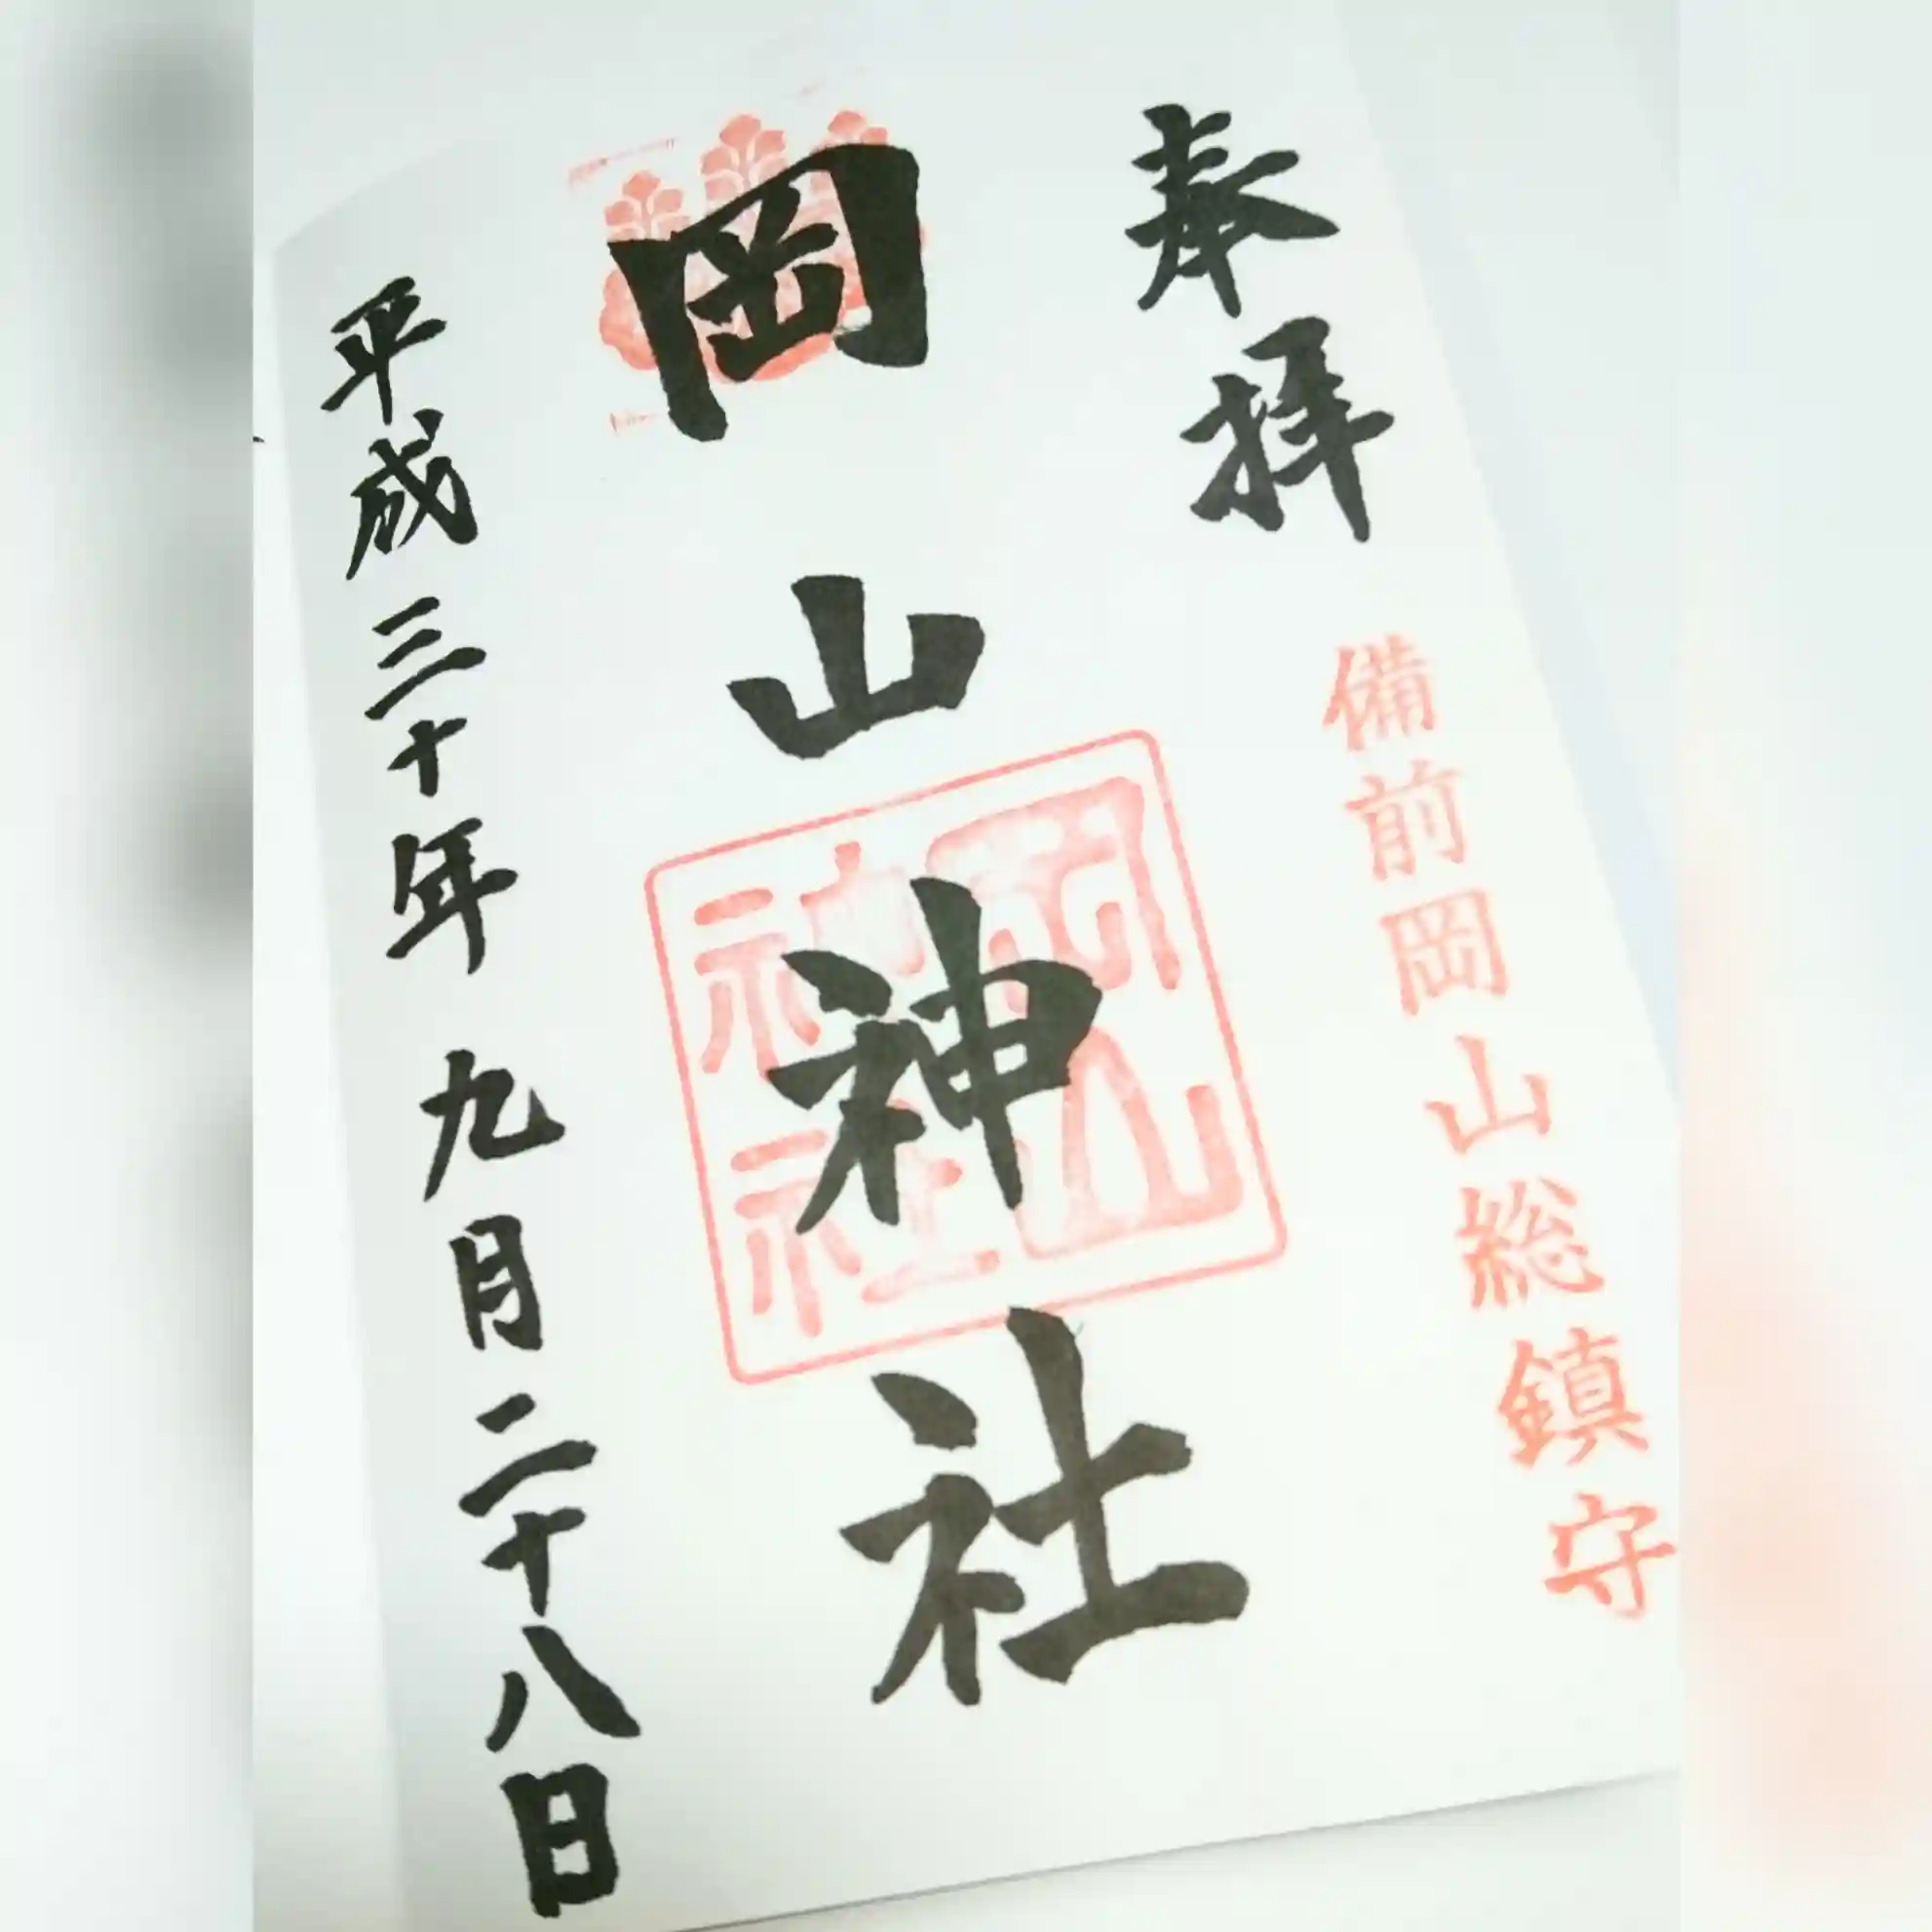 奉拝
備前岡山総鎮守
岡山神社
岡山
神社
平成三十年九月二十八日